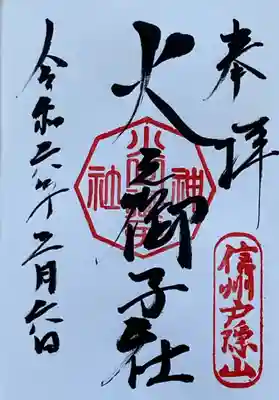 奉拝
信州戸隠山
火之御子社
神社
令和六年
月六日